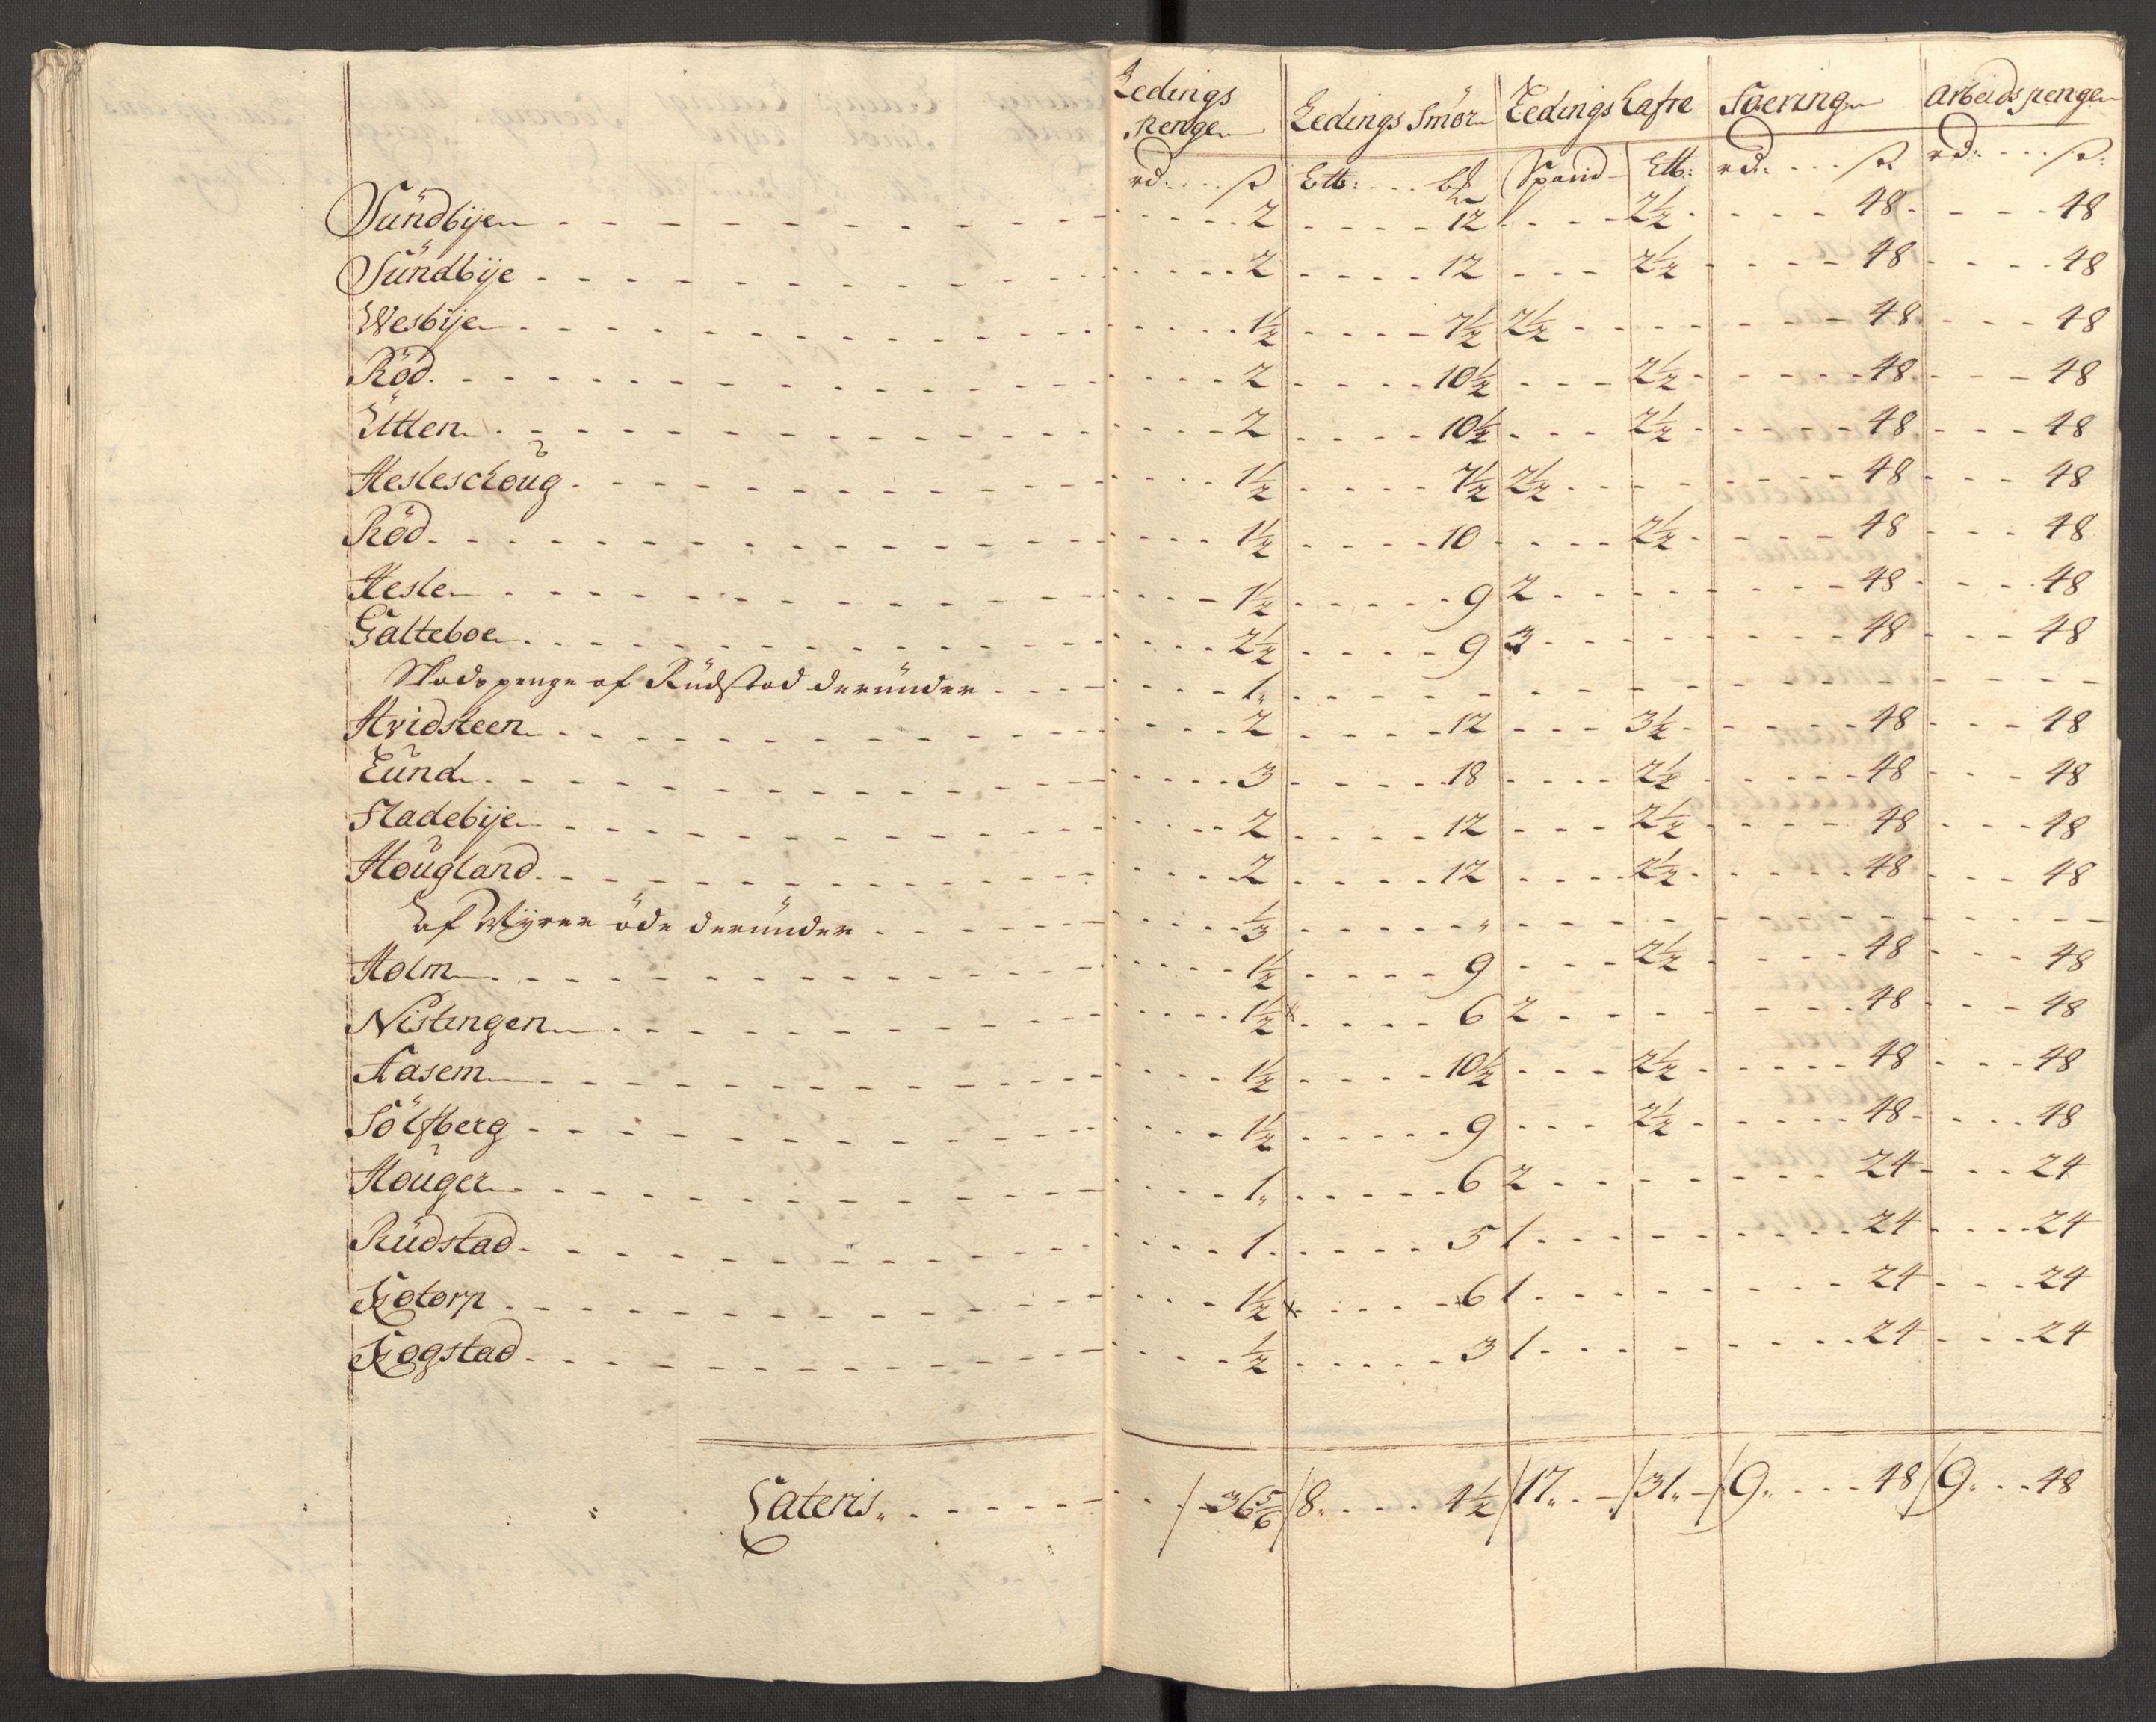 Ledings Penge | Ledings Smör | Ledings Hafre | Foering | Arbeids penge
rd: ß | Ltb: | Spand | Ltb: | rd: ß | rd: ß:
Sündbÿe 2 12 2½ 48 48
Sündbÿe 2 12 2½ 48 48
Wesbÿe 1½ 7½ 2½ 48 48
Röd 2 10½ 2½ 48 48
Utten 2 10½ 2½ 48 48
Hesleschoug 1½ 7½ 2½ 48 48
Röd 1½ 10 2½ 48 48
Hesle 1½ 9 2 48 48
Galteboe 2½ 9 3 48 48
Skads penge af Rüdstad deründer 1
Hvidsteen 2 12 3½ 48 48
Lund 3 18 2½ 48 48
Stadebÿe 2 12 2½ 48 48
Hougland 2 12 2½ 48 48
af Mÿrer öde deründer ⅓ "
Holm 1½ 9 2½ 48 48
Nistingen 1½ 6 2 48 48
Aasem 1½ 10½ 2½ 48 48
Sölfberg 1½ 9 2½ 48 48
Houger 1 6 2 24 24
Rüdstad 1 5 1 24 24
Kotorp 1½ 6 1 24 24
Kogstad ½ 3 1 24 24
Lateris 36⅚ 8 4½ 17 31 9 48 9 48